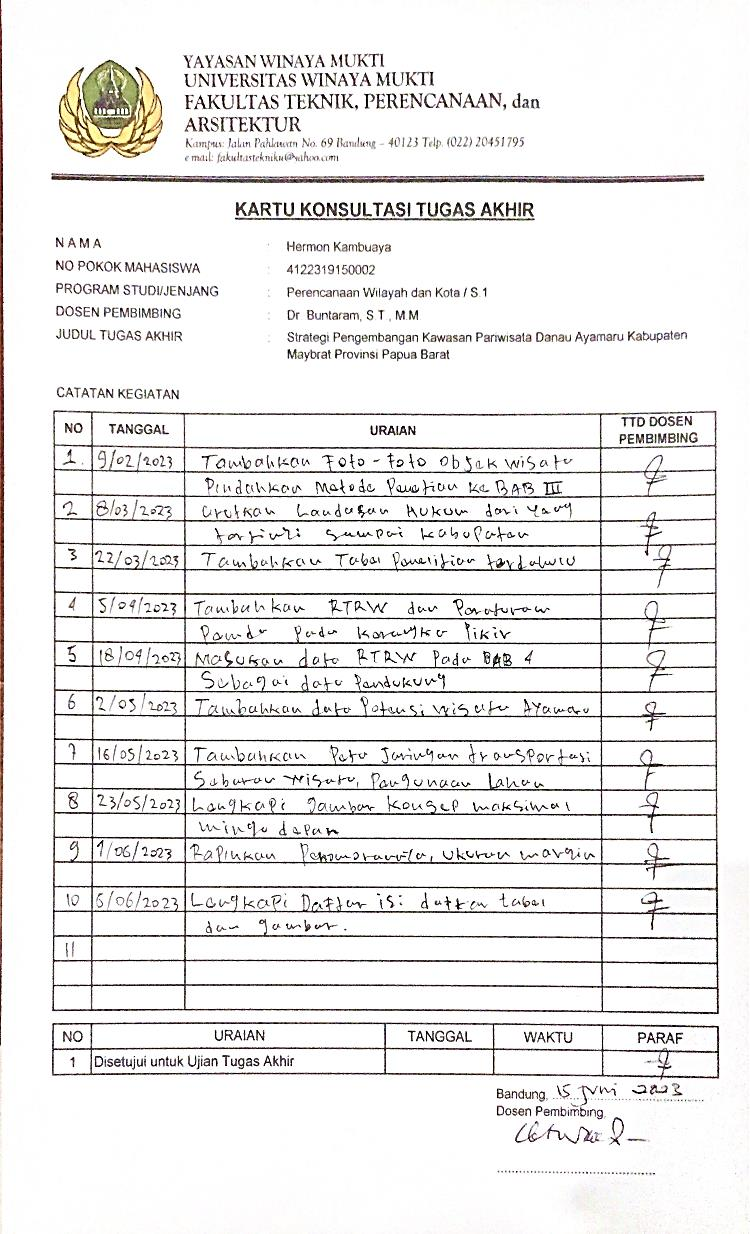 YAYASAN WINAYA MUKTI
UNIVERSITAS WINAYA MUKTI
FAKULTAS TEKNIK, PERENCANAAN, dan
ARSITEKTUR
Kampus: Jalan Pahlawan No. 69 Bandung – 40123 Telp. (022) 20451795
e mail: fakultastekniku@yahoo.com
KARTU KONSULTASI TUGAS AKHIR
N A M A : Hermon Kambuaya
NO POKOK MAHASISWA : 4122319150002
PROGRAM STUDI/JENJANG : Perencanaan Wilayah dan Kota / S.1
DOSEN PEMBIMBING : Dr Buntaram, S.T., M.M
JUDUL TUGAS AKHIR : Strategi Pengembangan Kawasan Pariwisata Danau Ayamaru Kabupaten
Maybrat Provinsi Papua Barat
CATATAN KEGIATAN
NO TANGGAL URAIAN TTD DOSEN
PEMBIMBING
1. 9/02/2023 Tambahkan Foto - Foto Objek wisata
Pindahkan Metode Penetian ke BAB III
2 8/03/2023 Urutkan Landasan Hukum dari yang
sampai kabupaten
3 22/03/2023 Tambahkan Tabel Penelitian terdahulu
4 5/04/2023 Tambahkan RTRW dan Peraturan
Pemda pada kerangka Pikir
5 18/04/2023 Masukan data RTRW Pada BAB 4
Sebagai data Pendukung
6 2/05/2023 Tambahkan data Potensi Wisata Ayamaru
7 16/05/2023 Tambahkan Peta Jaringan transportasi
Sebaran wisata, Pengunaan Lahan
8 23/05/2023 Lengkapi gambar konsep maksimal
mingu depan
9 1/06/2023 Rapihkan ukuran margin
10 6/06/2023 Lengkapi Daftar isi daftar tabel
dan gambar.
11
NO URAIAN TANGGAL WAKTU PARAF
1 Disetujui untuk Ujian Tugas Akhir
Bandung, 15 Juni 2023
Dosen Pembimbing,